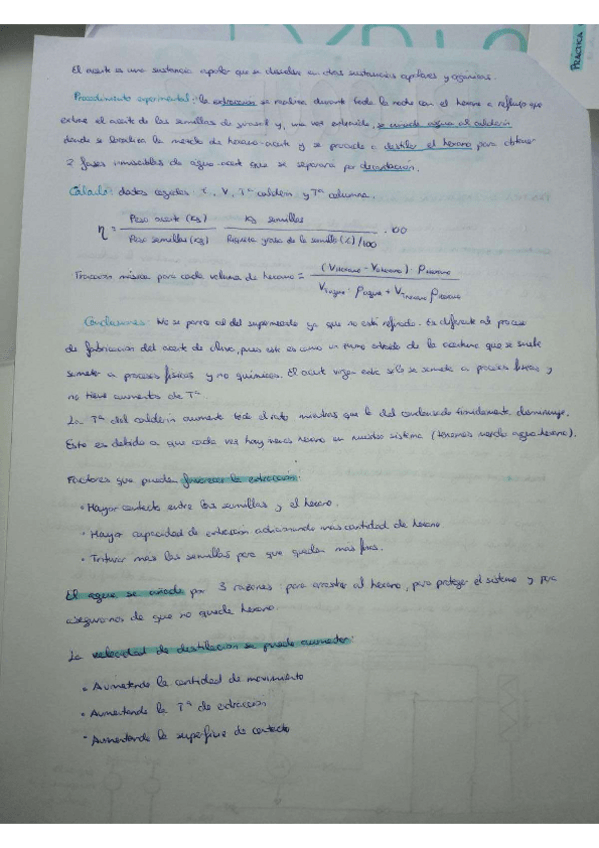 PRÁCTICA
El aceite es una sustancia apolar que se disuelve en otras sustancias apolares y orgánicas.
Procedimiento experimental: la extracción se realiza durante toda la noche con el hexano a reflujo que
extrae el aceite de las semillas de girasol y, una vez extraído, se añade agua al calderín
donde se localiza la mezcla de hexano-aceite y se procede a destilar el hexano para obtener
2 fases inmiscibles de agua-aceite que se separará por decantación.
Cálculo: datos cogidos: t, V, Tª calderín y Tª columna.
η = Peso aceite (kg) / Peso semillas (kg) · kg semillas / Riqueza grasa de la semilla (%)/100 · 100
Fracción másica para cada volumen de hexano = (V hexano - V hexano) · ρ hexano / V agua · ρ agua + V hexano ρ hexano
Conclusiones: No se parece al del supermercado ya que no está refinado. Es diferente al proceso
de fabricación del aceite de oliva, pues este es como un zumo extraído de la aceituna que se suele
someter a procesos físicos y no químicos. El aceite virgen extra solo se somete a procesos físicos y
no tiene aumentos de Tª
La Tª del calderín aumenta todo el rato mientras que la del condensado tímidamente disminuye.
Esto es debido a que cada vez hay menos hexano en nuestro sistema (tenemos mezcla agua-hexano).
Factores que pueden favorecer la extracción:
• Mayor contacto entre las semillas y el hexano.
• Mayor capacidad de extracción adicionando más cantidad de hexano
• Triturar más las semillas para que queden más finas.
El agua se añade por 3 razones: para arrastrar al hexano, para proteger el sistema y para
asegurarnos de que no quede hexano.
La velocidad de destilación se puede aumentar:
• Aumentando la cantidad de movimiento
• Aumentando la Tª de extracción
• Aumentando la superficie de contacto